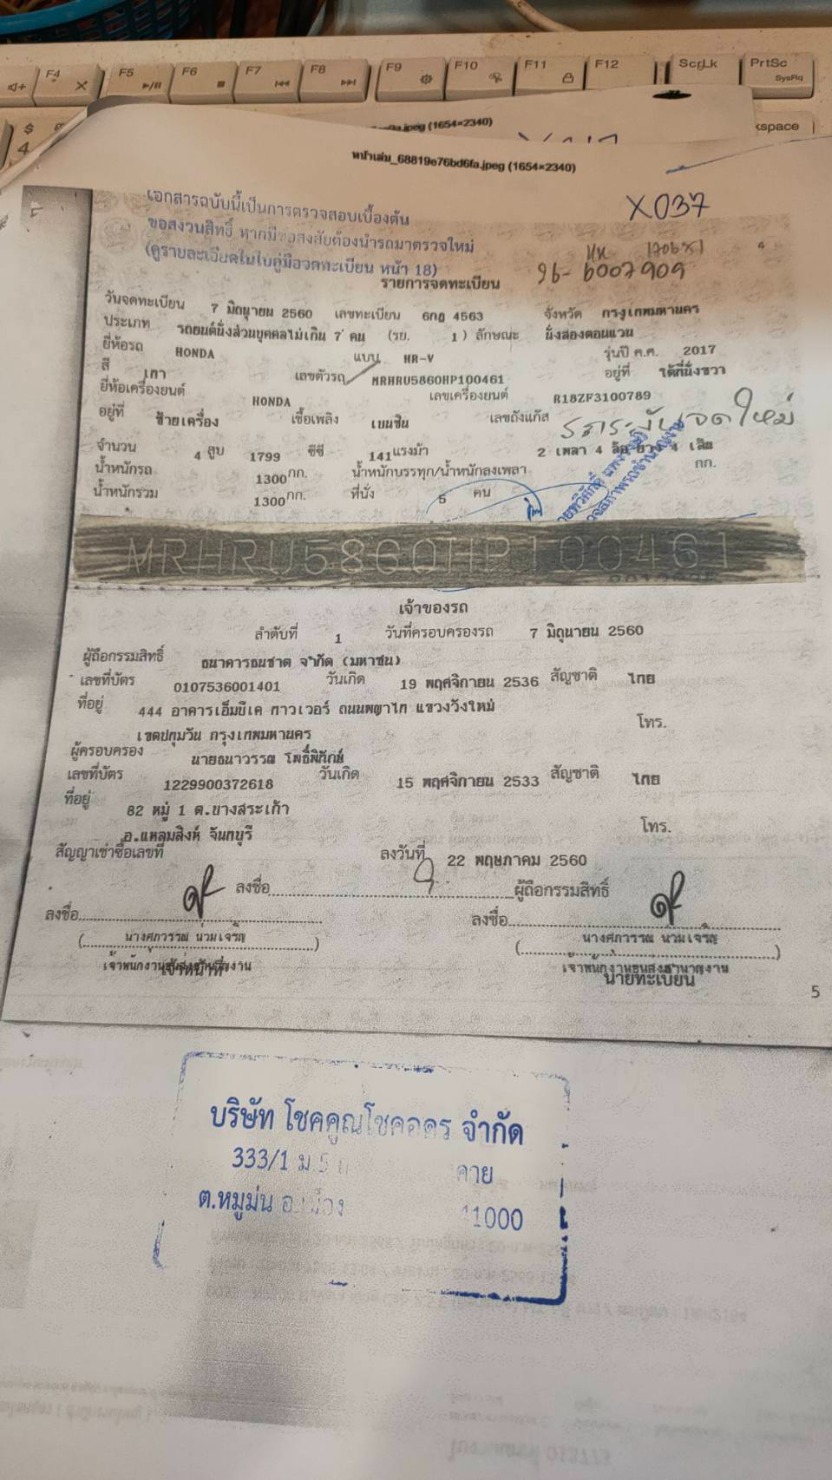 F4 F5 F6 F7 F8 F9 F10 F11 F12 ScrLk PrtSc
SysRq
$
4
.jpeg (1654×2340)
kspace
หน้าเล่ม_68819e76bd6fa.jpeg (1654×2340)
เอกสารฉบับนี้เป็นการตรวจสอบเบื้องต้น
X037
ขอสงวนสิทธิ์ หากมีข้อสงสัยต้องนำรถมาตรวจใหม่
4
(ดูรายละเอียดในใบคู่มือจดทะเบียน หน้า 18)
96-6007909
รายการจดทะเบียน
วันจดทะเบียน 7 มิถุนายน 2560 เลขทะเบียน 6กฎ 4563 จังหวัด กรุงเทพมหานคร
ประเภท รถยนต์นั่งส่วนบุคคลไม่เกิน 7 คน (รย. 1) ลักษณะ นั่งสองตอนแวน
ยี่ห้อรถ HONDA แบบ HR-V รุ่นปี ค.ศ. 2017
สี เทา เลขตัวรถ MRHRU5860HP100461 อยู่ที่ ใต้ที่นั่งขวา
ยี่ห้อเครื่องยนต์ HONDA เลขเครื่องยนต์ R18ZF3100789
อยู่ที่ ซ้ายเครื่อง เชื้อเพลิง เบนซิน เลขถังแก๊ส
จำนวน 4 สูบ 1799 ซีซี 141 แรงม้า 2 เพลา 4 ล้อ ยาง 4 เส้น
น้ำหนักรถ 1300 กก. น้ำหนักบรรทุก/น้ำหนักลงเพลา กก.
น้ำหนักรวม 1300 กก. ที่นั่ง 5 คน
MRHRU5860HP100461
เจ้าของรถ
ลำดับที่ 1 วันที่ครอบครองรถ 7 มิถุนายน 2560
ผู้ถือกรรมสิทธิ์ ธนาคารธนชาต จำกัด (มหาชน)
เลขที่บัตร 0107536001401 วันเกิด 19 พฤศจิกายน 2536 สัญชาติ ไทย
ที่อยู่ 444 อาคารเอ็มบีเค ทาวเวอร์ ถนนพญาไท แขวงวังใหม่
เขตปทุมวัน กรุงเทพมหานคร โทร.
ผู้ครอบครอง นายธนาวรรณ โพธิ์พิทักษ์
เลขที่บัตร 1229900372618 วันเกิด 15 พฤศจิกายน 2533 สัญชาติ ไทย
ที่อยู่ 82 หมู่ 1 ต.บางสระเก้า
อ.แหลมสิงห์ จันทบุรี โทร.
สัญญาเช่าซื้อเลขที่ ลงวันที่ 22 พฤษภาคม 2560
ลงชื่อ ผู้ถือกรรมสิทธิ์
ลงชื่อ ลงชื่อ
นางศภวรรณ นวมเจริญ นางศภวรรณ นวมเจริญ
เจ้าหน้าที่ นายทะเบียน
5
บริษัท โชคคูณโชคอคร จำกัด
333/1 ม.5
ต.หมูม่น อ.เมือง 41000